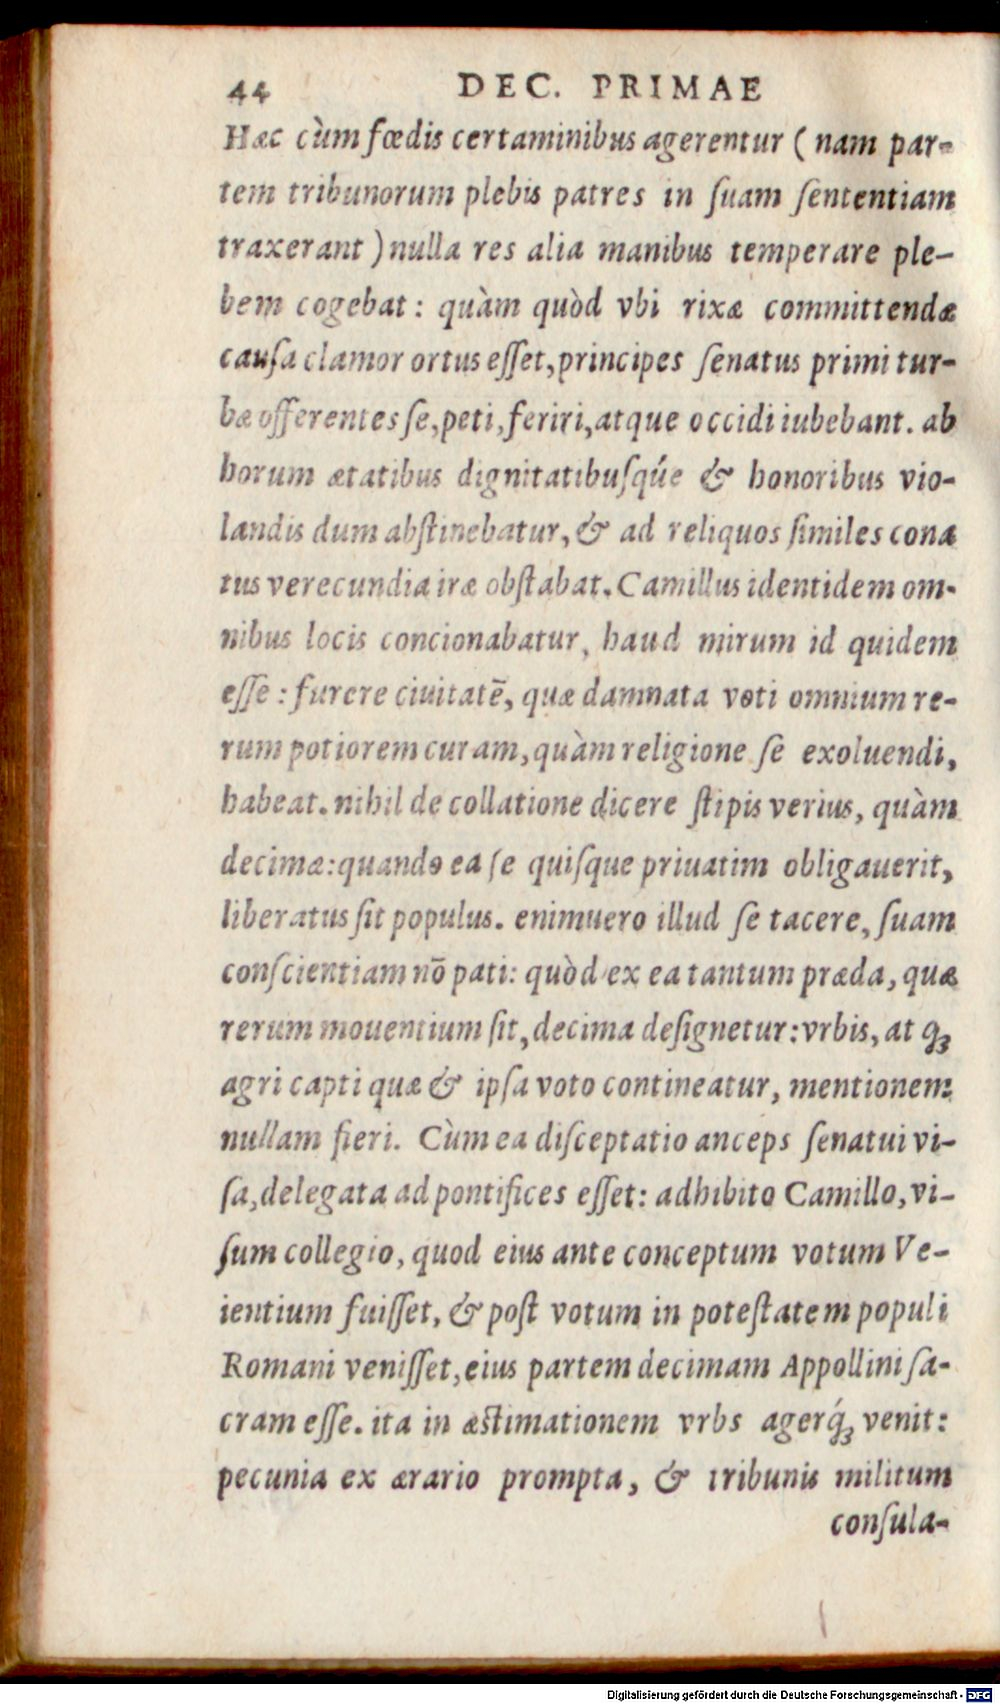 44 DEC. PRIMAE
Hæc cùm fœdis certaminibus agerentur ( nam par-
tem tribunorum plebis patres in ſuam ſententiam
traxerant ) nulla res alia manibus temperare ple-
bem cogebat : quàm quòd vbi rixæ committendæ
cauſa clamor ortus eſſet, principes ſenatus primi tur-
bæ offerentes ſe, peti, feriri, atque occidi iubebant. ab
horum ætatibus dignitatibuſqúe & honoribus vio-
landis dum abſtinebatur, & ad reliquos ſimiles cona
tus verecundia iræ obſtabat. Camillus identidem om-
nibus locis concionabatur, haud mirum id quidem
eſſe : furere ciuitatē, quæ damnata voti omnium re-
rum potiorem curam, quàm religione ſe exoluendi,
habeat. nihil de collatione dicere ſtipis verius, quàm
decimæ: quando ea ſe quiſque priuatim obligauerit,
liberatus ſit populus. enimuero illud ſe tacere, ſuam
conſcientiam nō pati: quòd ex ea tantum præda, quæ
rerum mouentium ſit, decima deſignetur: vrbis, at qꝫ
agri capti quæ & ipſa voto contineatur, mentionem
nullam fieri. Cùm ea diſceptatio anceps ſenatui vi-
ſa, delegata ad pontifices eſſet: adhibito Camillo, vi-
ſum collegio, quod eius ante conceptum votum Ve-
ientium fuiſſet, & poſt votum in poteſtatem populi
Romani veniſſet, eius partem decimam Appollini ſa-
cram eſſe. ita in æſtimationem vrbs agerq́ꝫ venit:
pecunia ex ærario prompta, & tribunis militum
conſula-
Digitalisierung gefördert durch die Deutsche Forschungsgemeinschaft - DFG